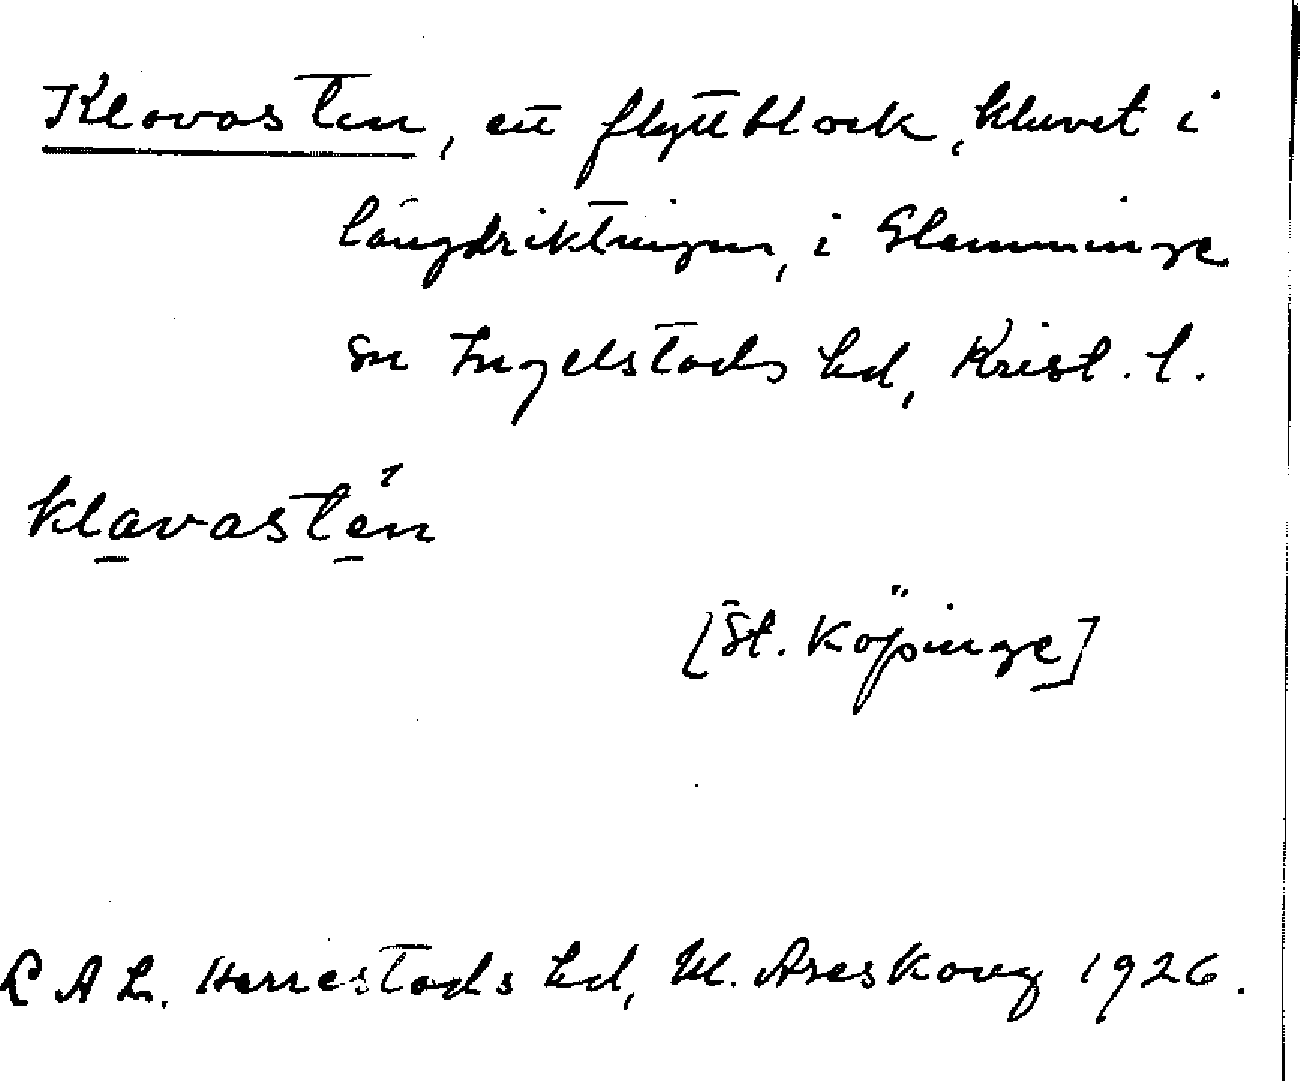 Klovasten, ett flyttblock, kluvet i
längdriktningen, i Glemminge
sn Ingelstads hd, Krist. l.
klavastén
[St. Köpinge]
L A L. Herrestads hd, M. Areskoug 1926.